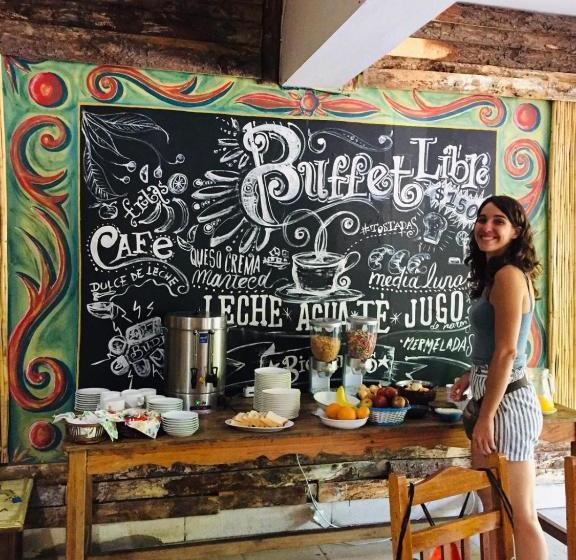 Buffet Libre
$150
frutas
CAFé
DULCE DE LECHE
QUESO CREMA
manteca
#TOSTADAS
media lunas
LECHE * AGUA * TÉ * JUGO
de naranja
*MERMELADAS